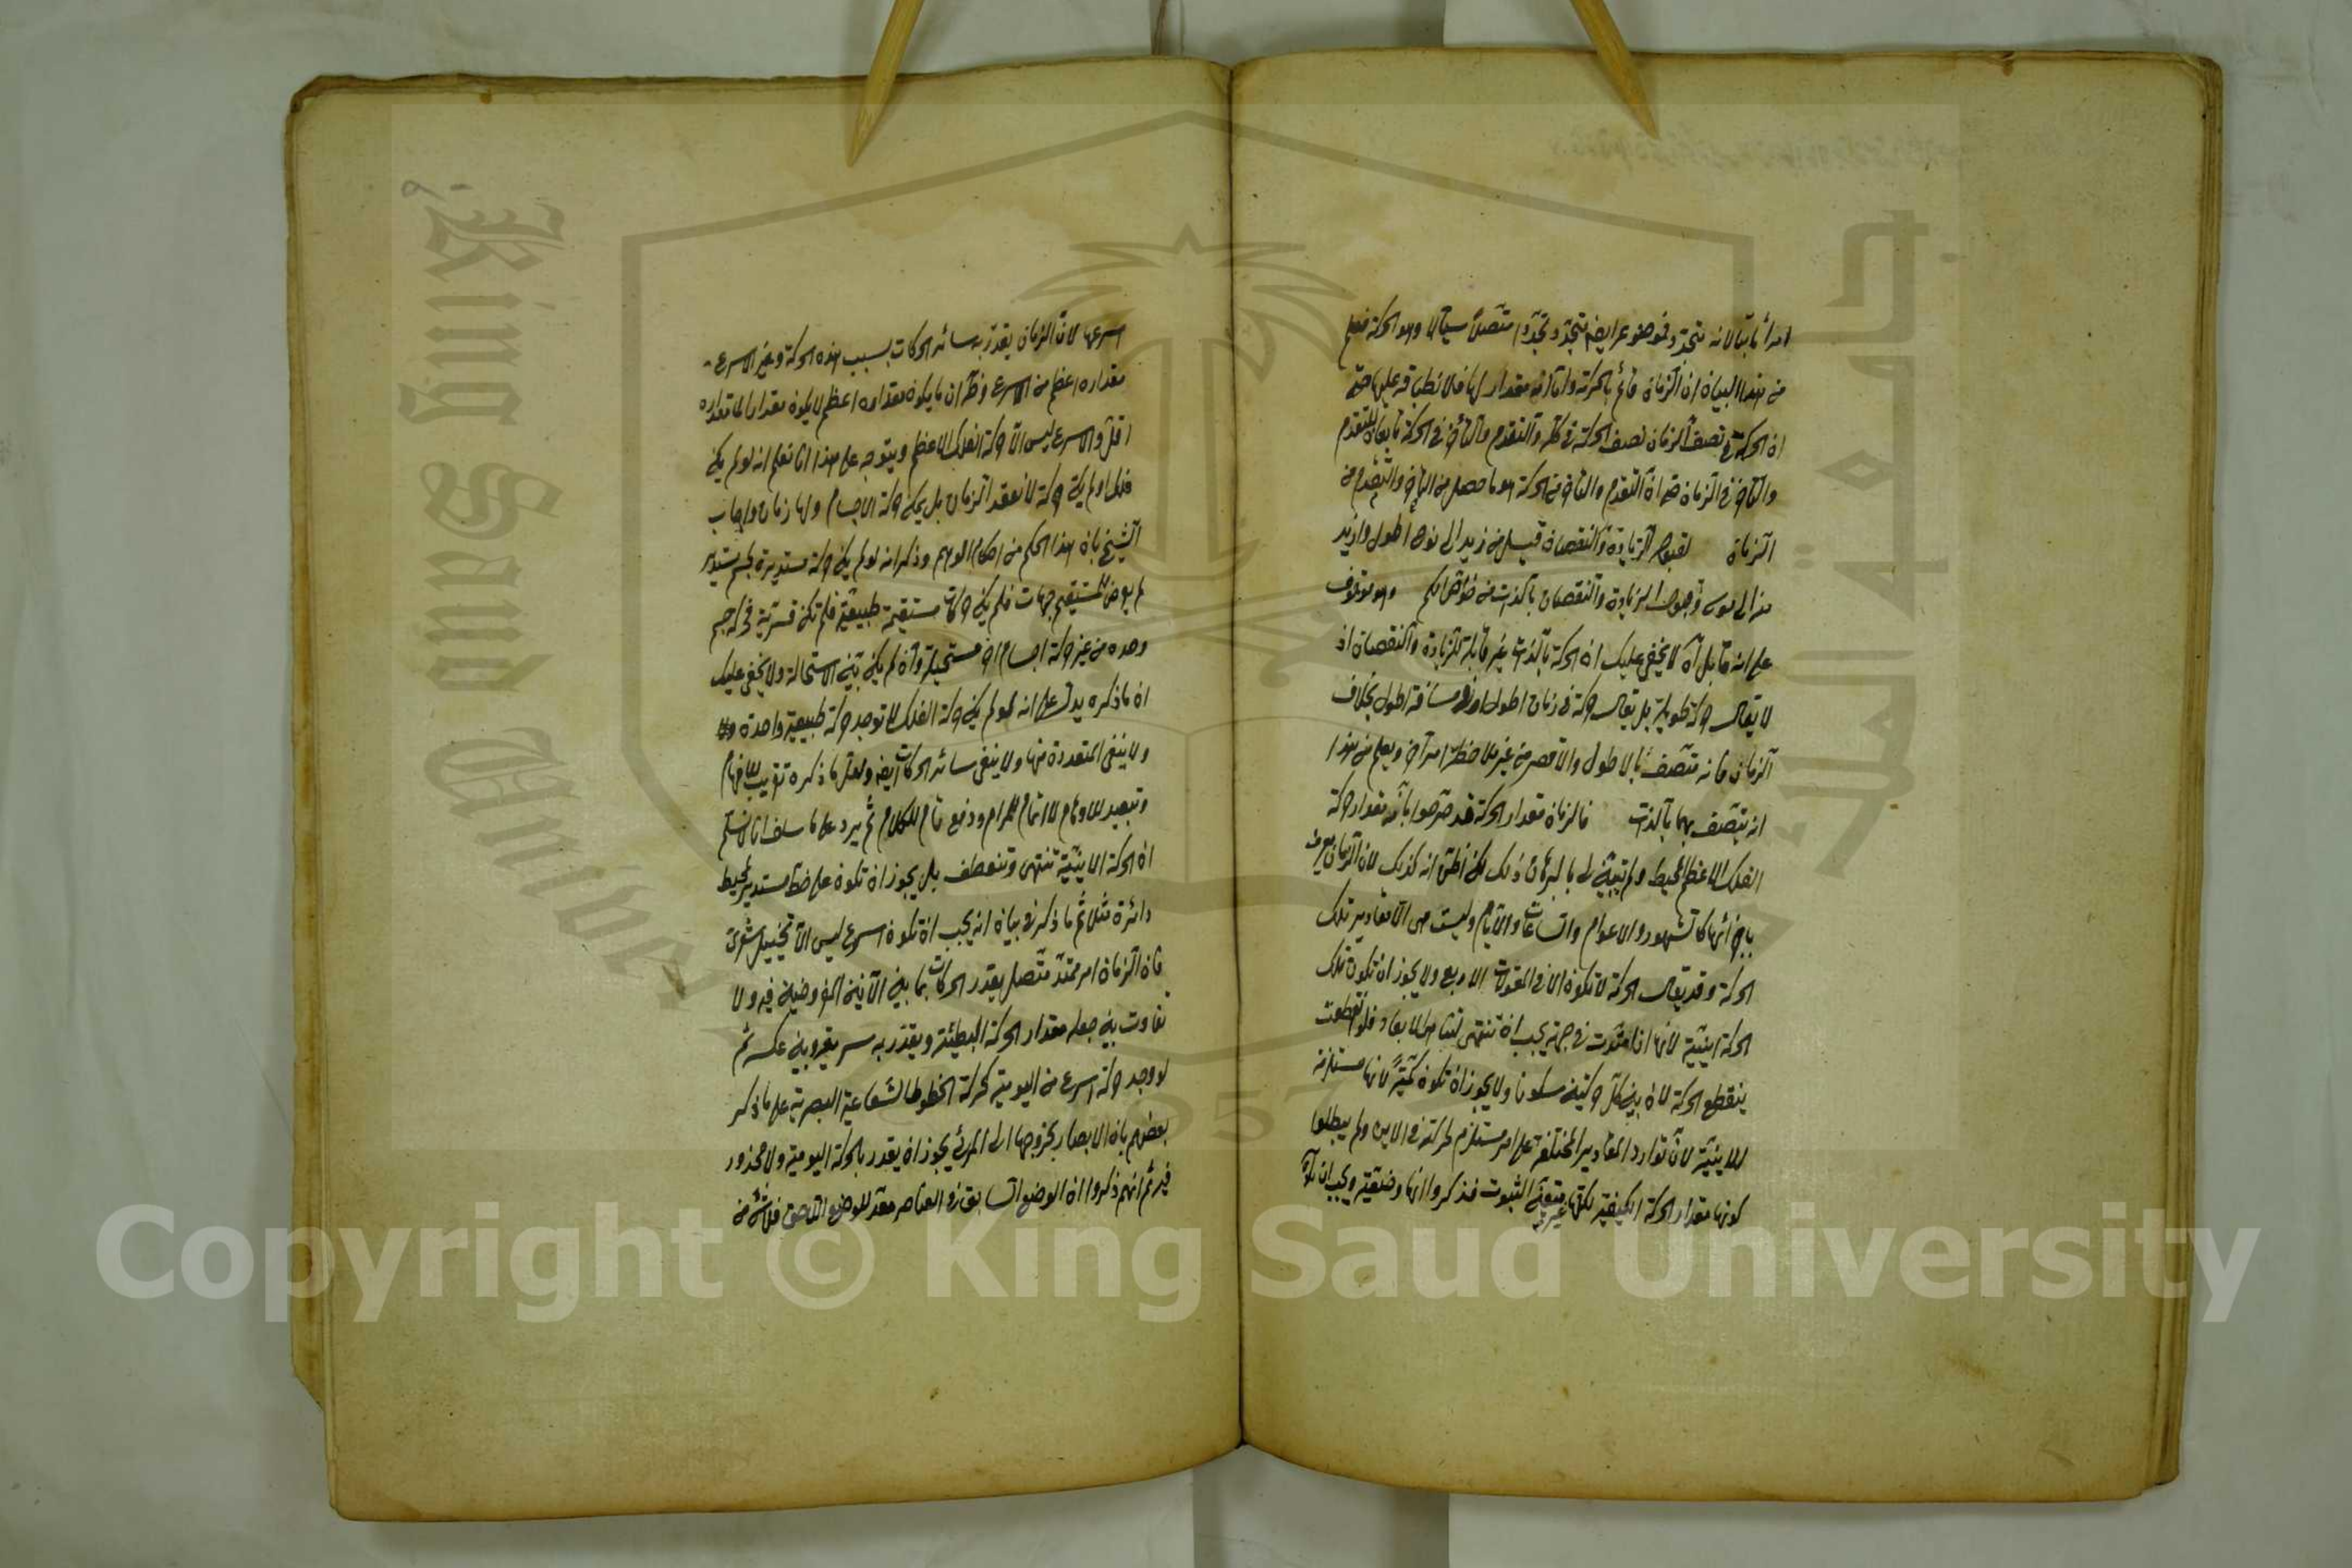 امرا ثابتا لانه متجدد فموضوعه ايضا متجدد تجددا متصلا سيالا وهو الحركة فعلم
من هذا البيان ان الزمان قائم بالحركة واما انه مقدار لها فلانطباقه عليها حتى
ان الحركة في نصف الزمان نصف الحركة في كله والتقدم والتأخر في الحركة تابعان للتقدم
والتأخر في الزمان حتى ان التقدم والتأخر في الحركة انما حصل من التأخر والتقدم من
الزمان لقبوله الزيادة والنقصان قيل من زيد الى نوح اطول وازيد
منه الى موسى وقبول الزيادة والنقصان بالذات من خواص الكم وهو موقوف
على انه قابل لا يخفى عليك ان الحركة بالذات غير قابلة للزيادة والنقصان اذ
لا يقال حركة طويلة بل يقال حركة في زمان اطول او في مسافة اطول بخلاف
الزمان فانه متصف بالاطول والاقصر من غير ملاحظة امر آخر ويعلم من هذا
انه يتصف بهما بالذات فالزمان مقدار الحركة قد صرحوا بانه مقدار حركة
الفلك الاعظم المحيط ولم يتبين لي بالبرهان ذلك لكن اظن انه كذلك لان الزمان يعرف
باجزائها كالشهور والاعوام والساعات والايام وليست هي الا مقادير تلك
الحركة وقد يقال الحركة لا تكون الا في المقولات الاربع ولا يجوز ان تكون تلك
الحركة اينية لانها اذا امتدت في جهة يجب ان تنتهي لتناهي الابعاد فلو انعطفت
ينقطع الحركة لان بين كل حركتين سكونا ولا يجوز ان تكون كمية لانها مستلزمة
للاينية لان توارد المقادير المختلفة على امر مستلزم لحركته في الاين ولم يبطلوا
كونها مقدار الحركة الكيفية لكنها غير متعينة الثبوت فذكروا انها وضعية ويجب ان تكون
اسرعها لان الزمان يقدر به سائر الحركات بسبب هذه الحركة وغير الاسرع
مقداره اعظم من الاسرع وظهر ان ما يكون مقداره اعظم لا يكون مقدارا لما مقداره
اقل والاسرع ليس الا حركة الفلك الاعظم ويتوجه على هذا انا نعلم انه لو لم يكن
فلك او لم يكن حركة لا نفقد الزمان بل يمكن حركة الاجسام ولها زمان واجاب
الشيخ بان هذا الحكم من احكام الوهم وذكر انه لو لم يكن حركة مستديرة لجسم مستدير
لم يعرض للمستقيم جهات فلم يكن حركات مستقيمة طبيعية فلم تكن قسرية فحركة جسم
وحده من غير حركة اجسام اخر مستحيلة وان لم يكن بين الاستحالة ولا يخفى عليك
ان ما ذكره يدل على انه لو لم يكن حركة الفلك لا توجد حركة طبيعية واحدة
ولا ينفي المتعددة منها ولا ينفي سائر الحركات ايضا ولعل ما ذكره تقريب للافهام
وتبعيد للاوهام لا اتمام للمرام ودفع تام للكلام ثم يرد على ما سلف انا لا نسلم
ان الحركة الاينية تنتهي وتنعطف بل يجوز ان تكون على خط مستدير كمحيط
دائرة مثلا ثم ما ذكر في بيان انه يجب ان تكون اسرع ليس الا تخييل شعري
فان الزمان امر ممتد متصل يقدر الحركات بما بين الآنين المفروضين فيه ولا
تفاوت بين جعله مقدار الحركة البطيئة ويقدر به سريعة وبين عكسه ثم
لو وجد حركة اسرع من اليومية كحركة الخطوط الشعاعية البصرية على ما ذكر
بعضهم بان الابصار بخروجها الى المرئي يجوز ان يقدر بالحركة اليومية ولا محذور
فيه ثم انهم ذكروا ان الوضع السابق في العناصر معد للوضع اللاحق فلا شيء من
Copyright © King Saud University
King Saud University
1957